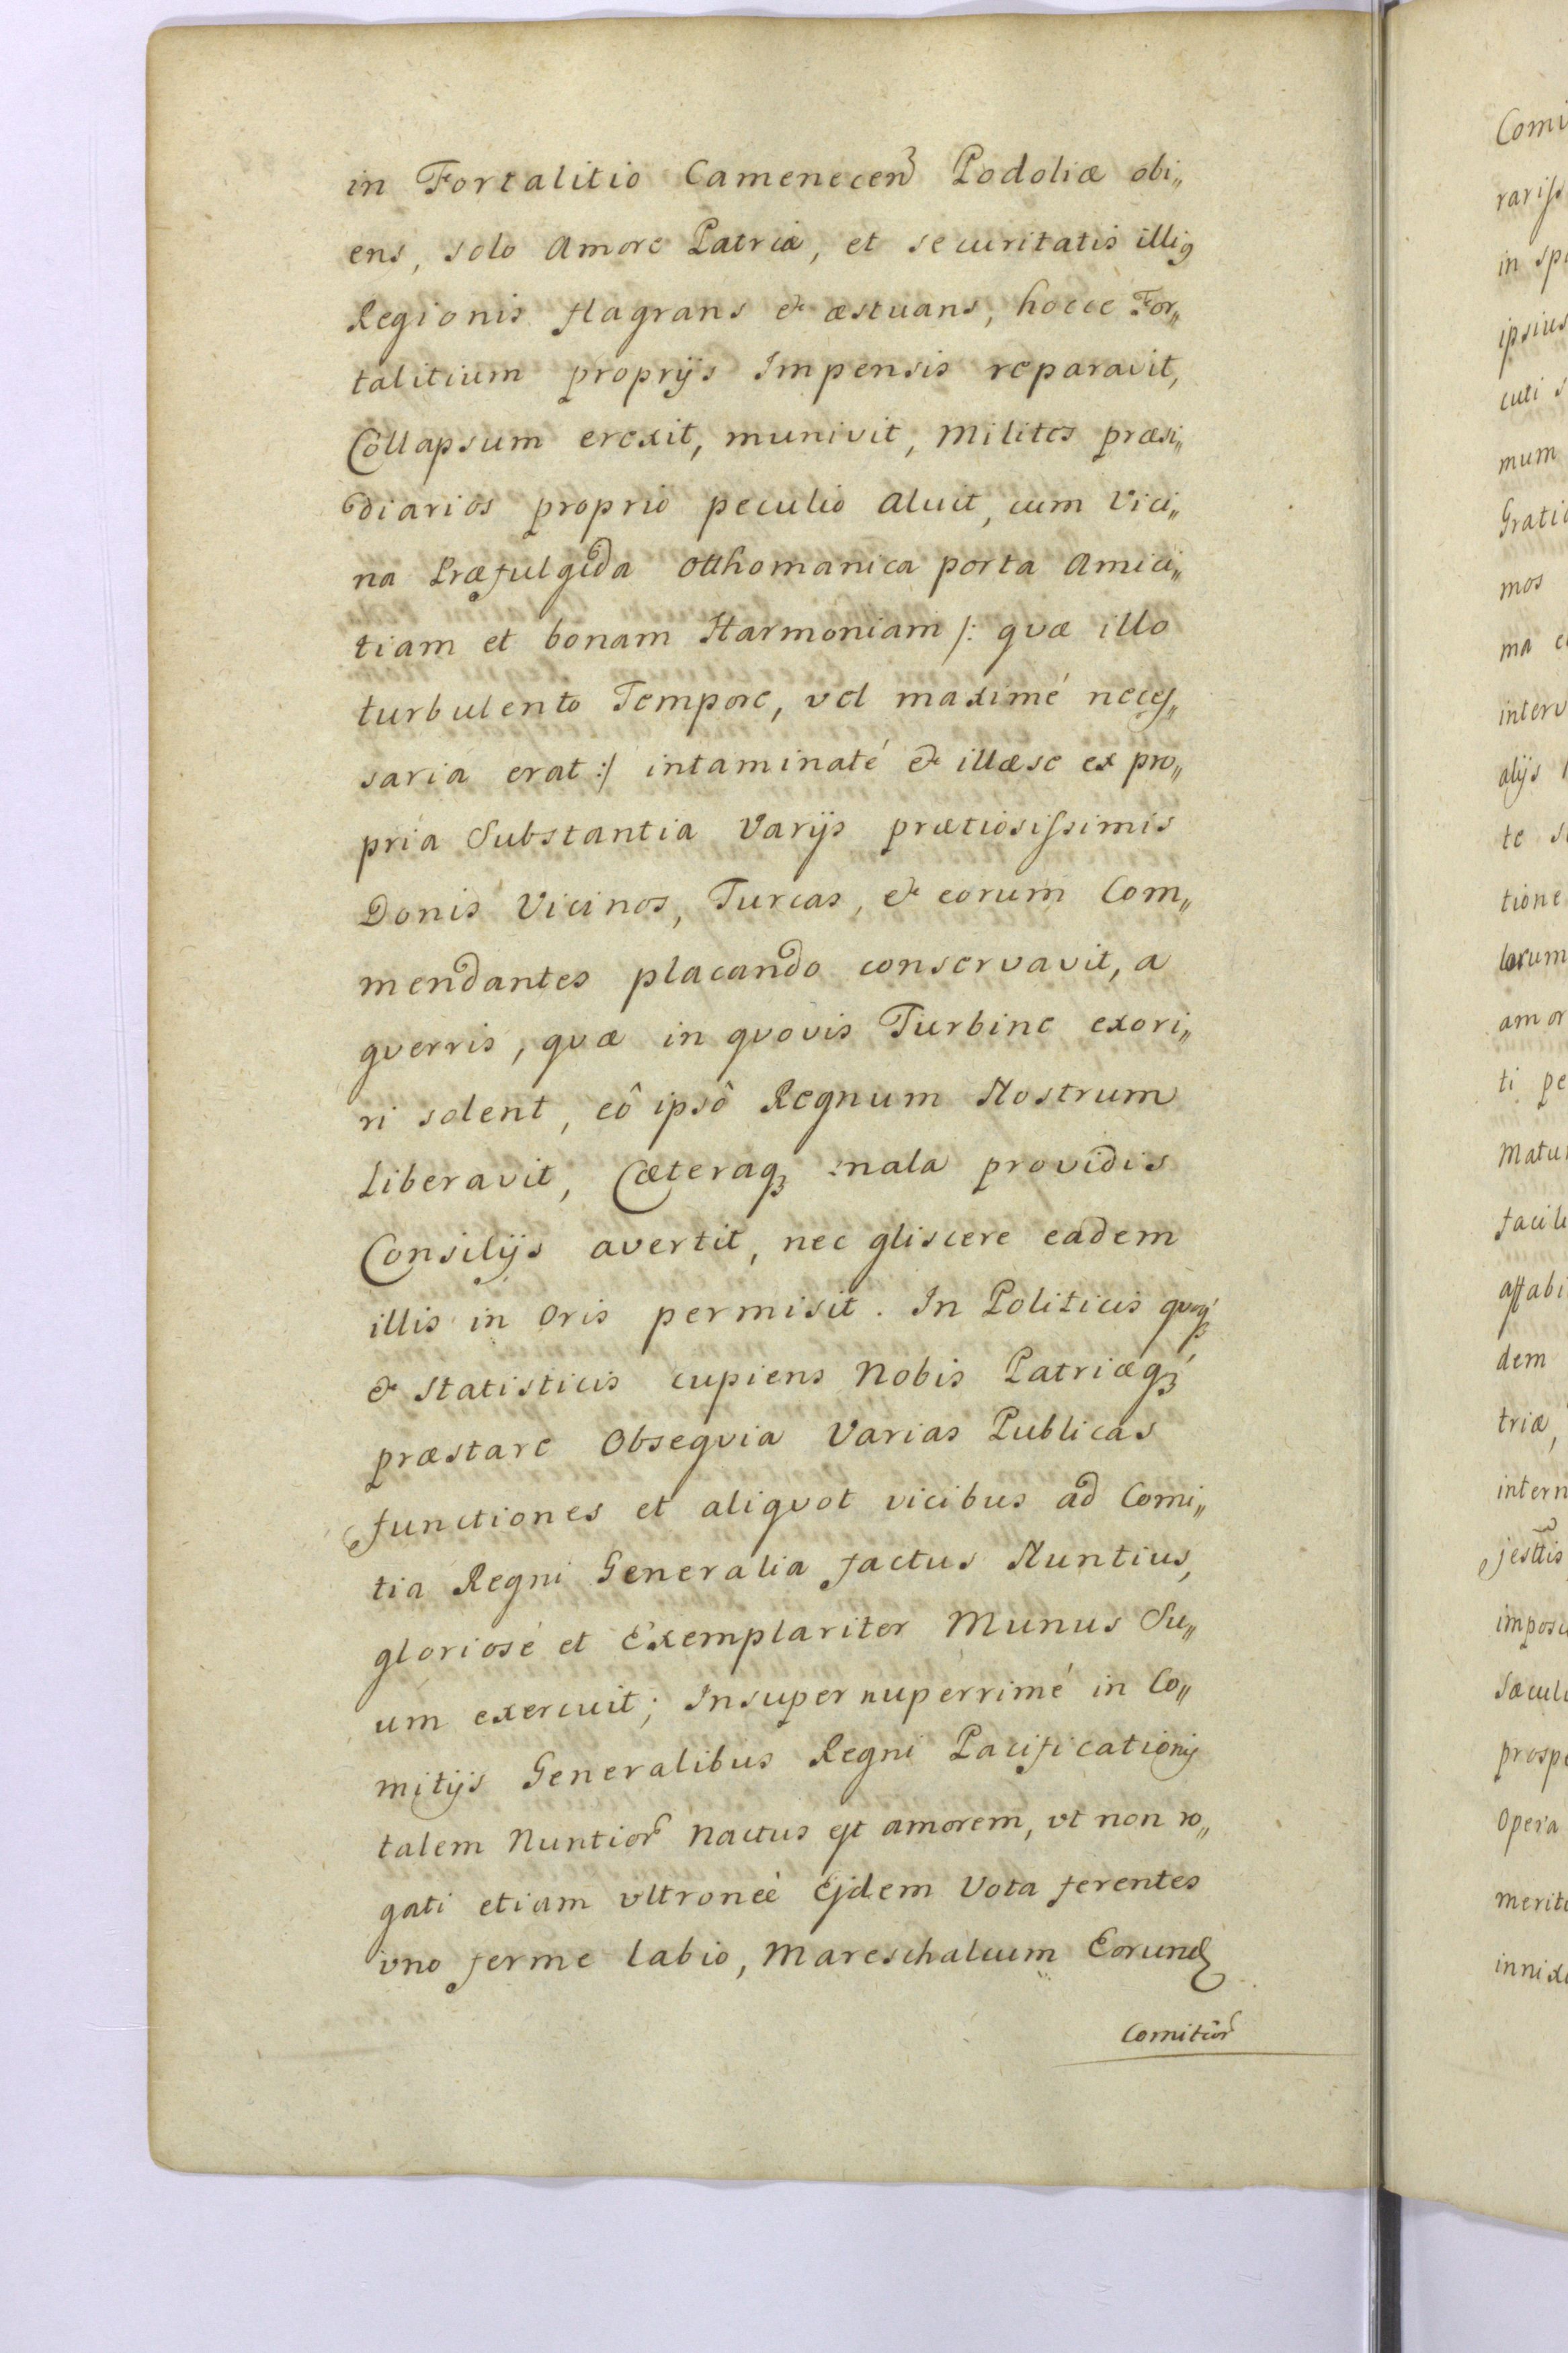 in Fortalitio Camenecen Podoliæ obi„
ens, solo Amore Patriæ, et securitatis illig
Regionis flagrans & æstuans, hocce For„
talitium proprijs Impensis reparavit,
Collapsum erexit, munivit, Milites præsi„
diarios proprio peculio aluit, cum Vici„
na Præfulgida Otthomanica porta Amici„
tiam et bonam Harmoniam /: qvæ illo
turbulento Tempore, vel maximé neces„
saria erat :/ intaminaté & illæse ex pro„
pria Substantia Varijs prætiosissimis
Donis Vicinos, Turcas, & eorum Com„
mendantes placando conservavit, a
gverris, qvæ in qvovis Turbine exori„
ri solent, eô ipsô Regnum Nostrum
Liberavit, Cæteraqȝ mala providis
Consilijs avertit, nec gliscere eadem
illis in Oris permisit. In Politicis qvoqȝ
& statisticis cupiens Nobis Patriæqȝ
præstare Obseqvia Varias Publicas
functiones et aliqvot vicibus ad Comi„
tia Regni Generalia factus Nuntius,
gloriosé et Exemplariter Munus Su„
um exercuit; Insuper nuperrimé in Co„
mitijs Generalibus Regni Pacificationis
talem Nuntior nactus est amorem, vt non ro„
gati etiam vltroneè Ejdem Vota ferentes
vno ferme labio, Mareschalcum Eorund
Comitior
Comi
rariss
in sp
ipsius
cuti s
mum
Grati
mos
ma c
interv
alijs
te s
tione
lorum
amor
ti pe
Matu
facil
affabi
dem
triæ,
intern
jesttis
impos
Sæcul
prosp
Opera
merit
innix